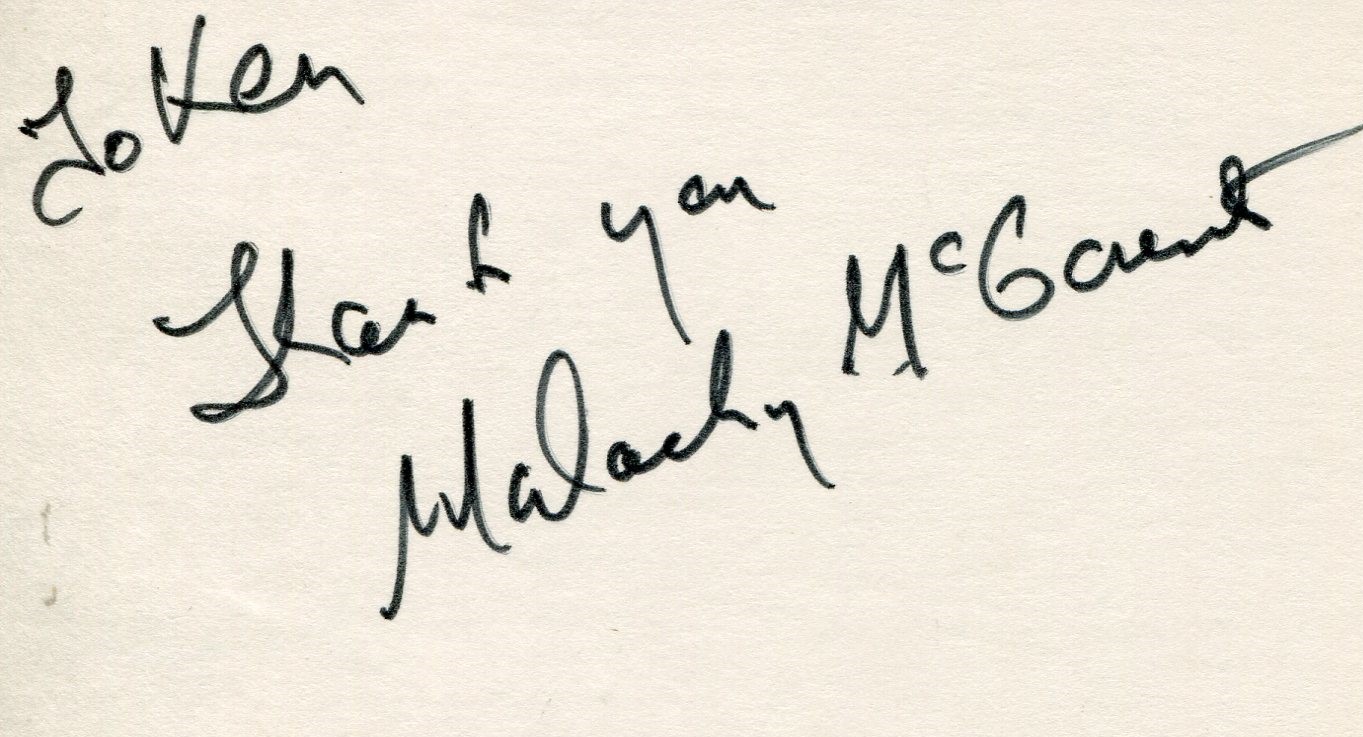 To Ken
Thank you
Malachy McCourt